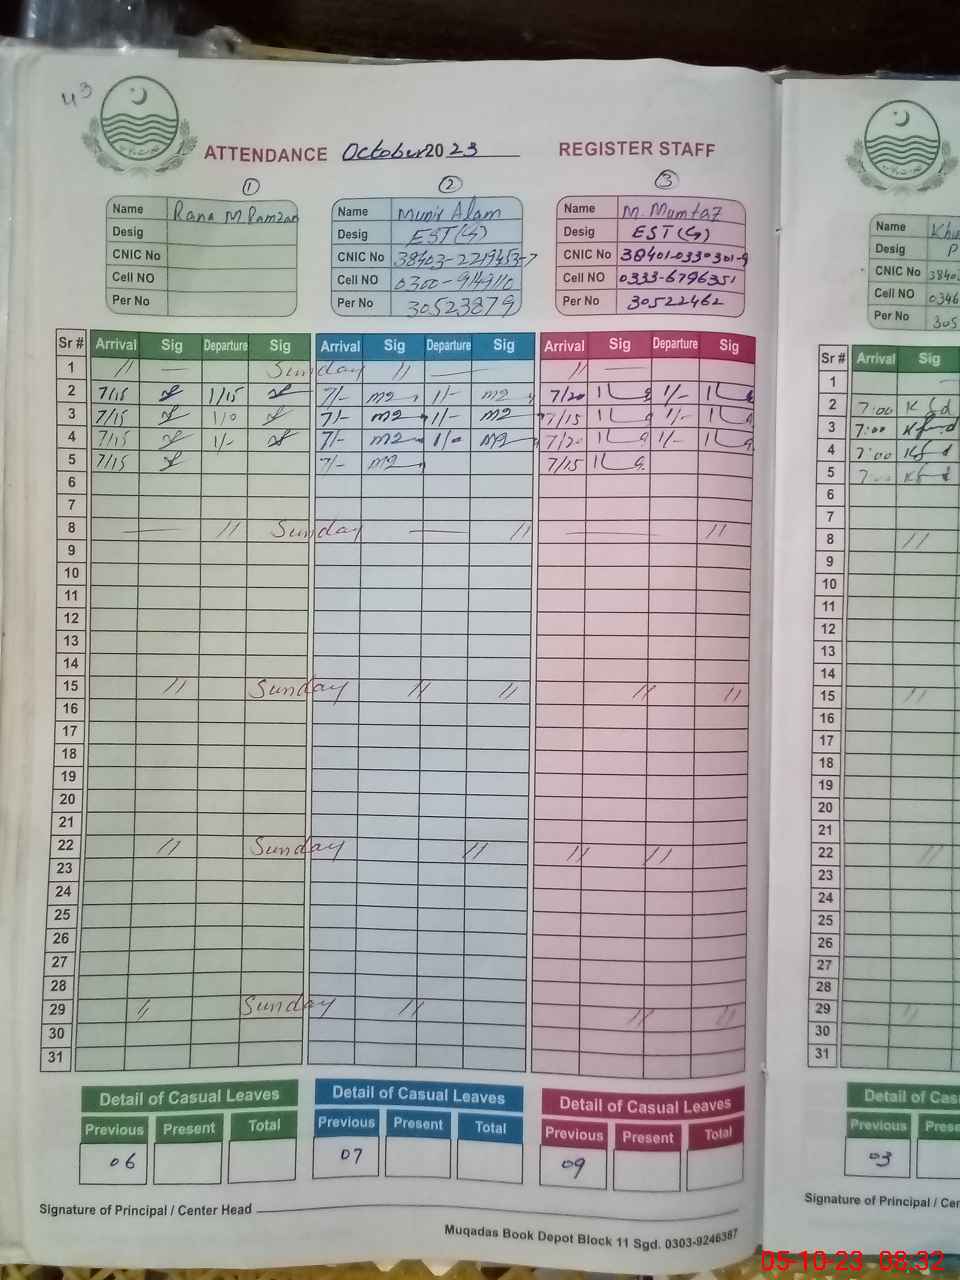 43
ATTENDANCE October 2023 REGISTER STAFF
1 2 3
Name Rana M. Ramzan
Desig
CNIC No
Cell NO
Per No
Name Munir Alam
Desig EST(G)
CNIC No 38403-2219453-7
Cell NO
Per No 30523879
Name M. Mumtaz
Desig EST(G)
CNIC No 38401-0330301-9
Cell NO 0333-6796351
Per No 30522462
Name
Desig
CNIC No
Cell NO 0346
Per No 305
Sr # Arrival Sig Departure Sig Arrival Sig Departure Sig Arrival Sig Departure Sig
1 // Sunday // //
2 7/15 1/15 7/- 1/- 7/20 1/-
3 7/15 1/0 7/- 1/- 7/15 1/-
4 7/15 1/- 7/- 1/0 7/20 1/-
5 7/15 7/- 7/15
6
7
8 // Sunday // //
9
10
11
12
13
14
15 // Sunday // // // //
16
17
18
19
20
21
22 // Sunday // // //
23
24
25
26
27
28
29 // Sunday // // //
30
31
Sr # Arrival Sig
1
2 7:00
3 7:00
4 7:00
5
6
7
8 //
9
10
11
12
13
14
15 //
16
17
18
19
20
21
22 //
23
24
25
26
27
28
29 //
30
31
Detail of Casual Leaves Detail of Casual Leaves Detail of Casual Leaves
Previous Present Total Previous Present Total Previous Present Total
06 07 09
Detail of Cas
Previous Prese
03
Signature of Principal / Center Head
Signature of Principal / Cen
Muqadas Book Depot Block 11 Sgd. 0303-9246387
05-10-23 08:32